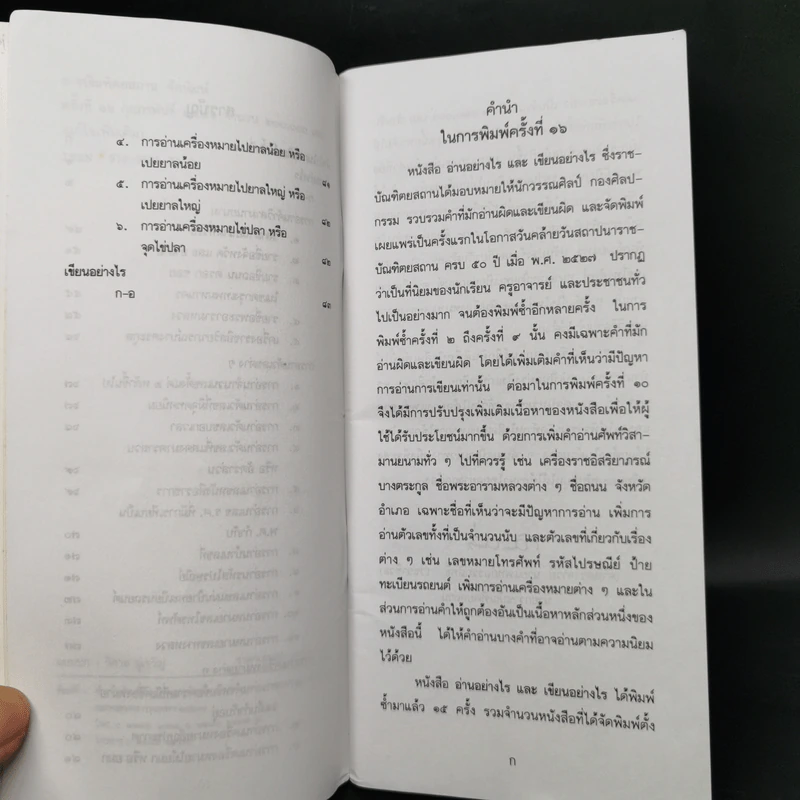 ๔. การอ่านเครื่องหมายไปยาลน้อย หรือ
เปยยาลน้อย ๘๑
๕. การอ่านเครื่องหมายไปยาลใหญ่ หรือ
เปยยาลใหญ่ ๘๒
๖. การอ่านเครื่องหมายไข่ปลา หรือ
จุดไข่ปลา ๘๒
เขียนอย่างไร
ก-อ ๘๓
คำนำ
ในการพิมพ์ครั้งที่ ๑๖
หนังสือ อ่านอย่างไร และ เขียนอย่างไร ซึ่งราช-
บัณฑิตยสถานได้มอบหมายให้นักวรรณศิลป์ กองศิลป-
กรรม รวบรวมคำที่มักอ่านผิดและเขียนผิด และจัดพิมพ์
เผยแพร่เป็นครั้งแรกในโอกาสวันคล้ายวันสถาปนาราช-
บัณฑิตยสถาน ครบ ๕๐ ปี เมื่อ พ.ศ. ๒๕๒๗ ปรากฏ
ว่าเป็นที่นิยมของนักเรียน ครูอาจารย์ และประชาชนทั่ว
ไปเป็นอย่างมาก จนต้องพิมพ์ซ้ำอีกหลายครั้ง ในการ
พิมพ์ซ้ำครั้งที่ ๒ ถึงครั้งที่ ๙ นั้น คงมีเฉพาะคำที่มัก
อ่านผิดและเขียนผิด โดยได้เพิ่มเติมคำที่เห็นว่ามีปัญหา
การอ่านการเขียนเท่านั้น ต่อมาในการพิมพ์ครั้งที่ ๑๐
จึงได้มีการปรับปรุงเพิ่มเติมเนื้อหาของหนังสือเพื่อให้ผู้
ใช้ได้รับประโยชน์มากขึ้น ด้วยการเพิ่มคำอ่านศัพท์วิสา-
มานยนามทั่ว ๆ ไปที่ควรรู้ เช่น เครื่องราชอิสริยาภรณ์
บางตระกูล ชื่อพระอารามหลวงต่าง ๆ ชื่อถนน จังหวัด
อำเภอ เฉพาะชื่อที่เห็นว่าจะมีปัญหาการอ่าน เพิ่มการ
อ่านตัวเลขทั้งที่เป็นจำนวนนับ และตัวเลขที่เกี่ยวกับเรื่อง
ต่าง ๆ เช่น เลขหมายโทรศัพท์ รหัสไปรษณีย์ ป้าย
ทะเบียนรถยนต์ เพิ่มการอ่านเครื่องหมายต่าง ๆ และใน
ส่วนการอ่านคำให้ถูกต้องอันเป็นเนื้อหาหลักส่วนหนึ่งของ
หนังสือนี้ ได้ให้คำอ่านบางคำที่อาจอ่านตามความนิยม
ไว้ด้วย
หนังสือ อ่านอย่างไร และ เขียนอย่างไร ได้พิมพ์
ซ้ำมาแล้ว ๑๕ ครั้ง รวมจำนวนหนังสือที่ได้จัดพิมพ์ตั้ง
ก